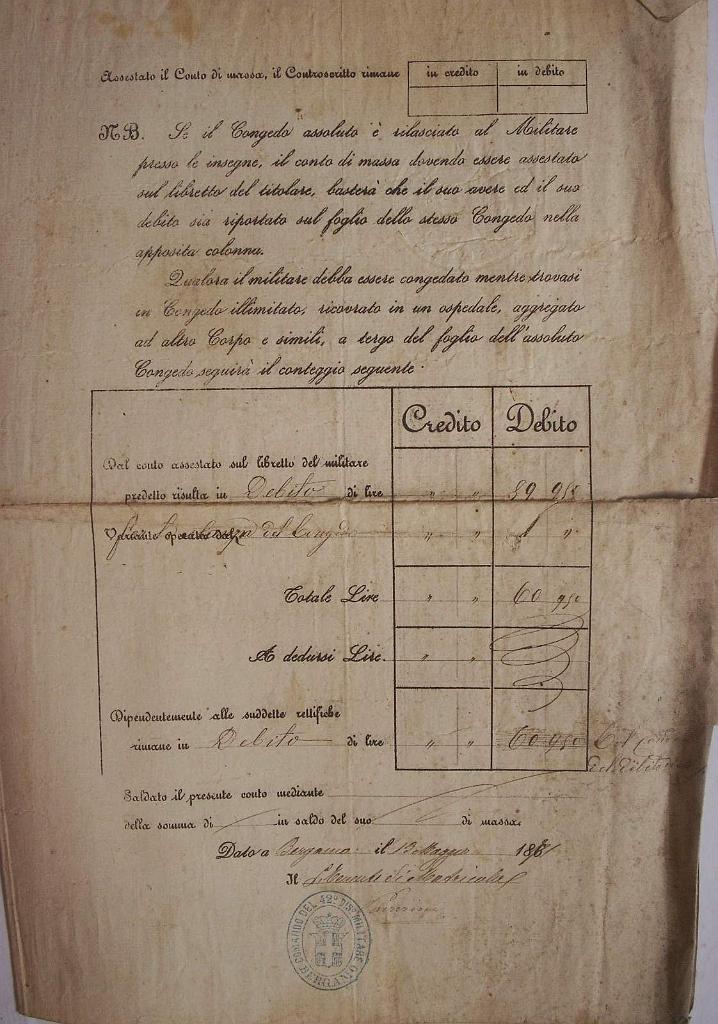 Assestato il Conto di massa, il Controscritto rimane
in credito in debito
N.B. Se il Congedo assoluto è rilasciato al Militare
presso le insegne, il conto di massa dovendo essere assestato
sul libretto del titolare, basterà che il suo avere ed il suo
debito sia riportato sul foglio dello stesso Congedo nella
apposita colonna.
Qualora il militare debba essere congedato mentre trovasi
in Congedo illimitato, ricovrato in un ospedale, aggregato
ad altro Corpo e simili, a tergo del foglio dell'assoluto
Congedo seguirà il conteggio seguente:
Credito Debito
Dal conto assestato sul libretto del militare
predetto risulta in Debito di lire " " 59 950
del Congedo " " 1 "
Totale Lire " " 60 950
A dedursi Lire. " "
Dipendentemente alle suddette rettifiche
rimane in Debito di lire " " 60 950
Saldato il presente conto mediante
della somma di in saldo del suo di massa.
Dato a Bergamo il 13 Maggio 18
Il di Matricola
COMANDO DEL 42° DIS° MILITARE
BERGAMO